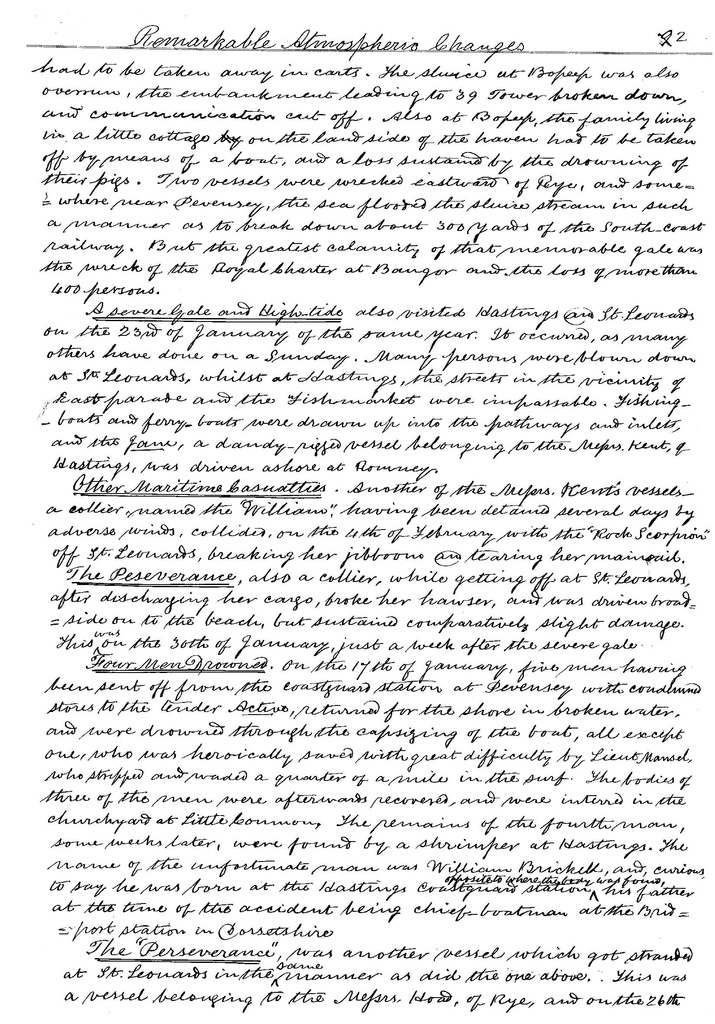 Remarkable Atmospheric Changes 22
had to be taken away in carts. The sluice at Bopeep was also
overrun, the embankment leading to 39 Tower broken down,
and communication cut off. Also at Bopeep, the family living
in a little cottage by on the land side of the haven had to be taken
off by means of a boat, and a loss sustaind by the drowning of
their pigs. Two vessels were wrecked eastward of Rye, and some=
=where near Pevensey, the sea flooded the sluice stream in such
a manner as to break down about 300 yards of the South-coast
railway. But the greatest calamity of that memorable gale was
the wreck of the Royal Charter at Bangor and the loss of more than
400 persons.
A severe Gale and High-tide also visited Hastings an St. Leonards
on the 23rd of January of the same year. It occurred, as many
others have done on a Sunday. Many persons were blown down
at St. Leonards, whilst at Hastings, the streets in the vicinity of
East parade and the Fishmarket were impassable. Fishing-
-boats and ferry-boats were drawn up into the pathways and inlets,
and the Jane, a dandy-rigged vessel belonging to the Messrs. Kent, of
Hastings, was driven ashore at Romney.
Other Maritime Casualties. Another of the Messrs. Kent's vessels—
a collier, named the "William", having been detained several days by
adverse winds, collided, on the 4th of February with the "Rock Scorpion"
off St. Leonards, breaking her jibboom an tearing her mainsail.
The Peseverance, also a collier, while getting off at St. Leonards,
after discharging her cargo, broke her hawser, and was driven broad=
=side on to the beach, but sustained comparatively slight damage.
This was on the 30th of January, just a week after the severe gale.
Four Men Drowned. On the 17th of January, five men having
been sent off from the coastguard station at Pevensey with condemned
stores to the tender Active, returned for the shore in broken water,
and were drowned through the capsizing of the boat, all except
one, who was heroically saved with great difficulty by Lieut. Mansel,
who stripped and waded a quarter of a mile in the surf. The bodies of
three of the men were afterwards recovered, and were interred in the
churchyard at Little Common, The remains of the fourth man,
some weeks later, were found by a shrimper at Hastings. The
name of the unfortunate man was William Brickell, and, curious
to say he was born at the Hastings Coastguard station, opposite to where the body was found, his father
at the time of the accident being chief-boatman at the Brid=
=port station in Dorsetshire
The "Perseverance", was another vessel which got stranded
at St. Leonards in the same manner as did the one above. This was
a vessel belonging to the Messrs. Hoad, of Rye, and on the 26th